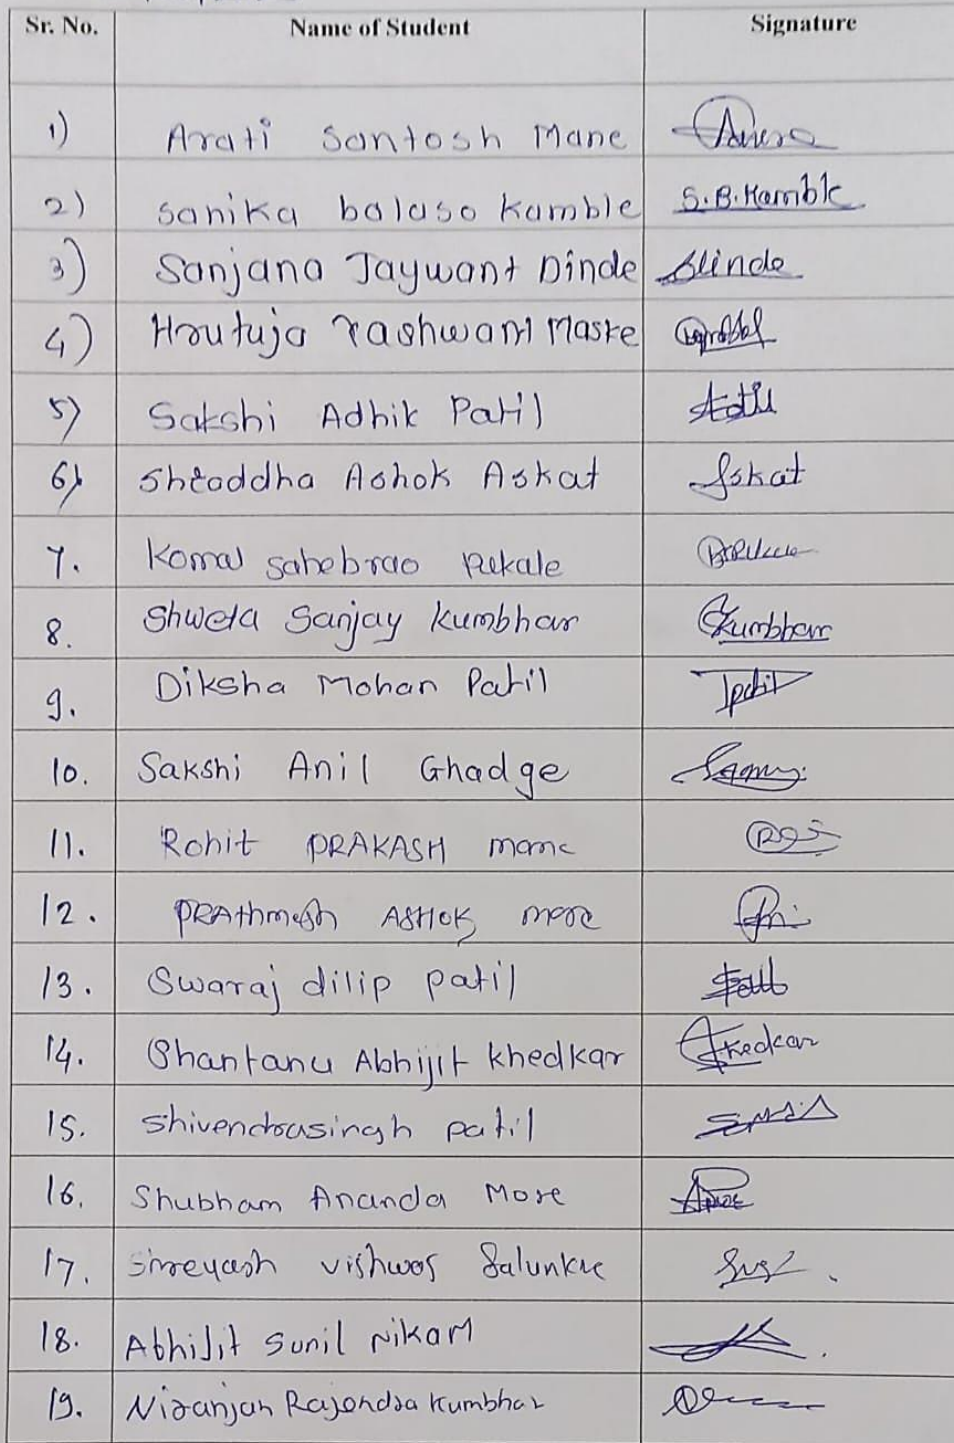 Sr. No. Name of Student Signature
1) Arati Santosh Mane
2) Sanika balaso Kamble S.B.Kamble
3) Sanjana Jaywant Dinde Dinde
4) Hrutuja Yashwant Maske
5) Sakshi Adhik Patil
6) Shraddha Ashok Askat Askat
7. Komal sahebrao Rekale
8. Shweta Sanjay Kumbhar Kumbhar
9. Diksha Mohan Patil Patil
10. Sakshi Anil Ghadge
11. Rohit PRAKASH mane
12. PRAthmesh ASHOK more
13. Swaraj dilip patil
14. Shantanu Abhijit Khedkar Khedkar
15. Shivendrasingh patil
16. Shubham Ananda More
17. Shreyash vishwas Salunkhe
18. AbhiJit Sunil NikaM
19. Niranjan Rajendra Kumbhar